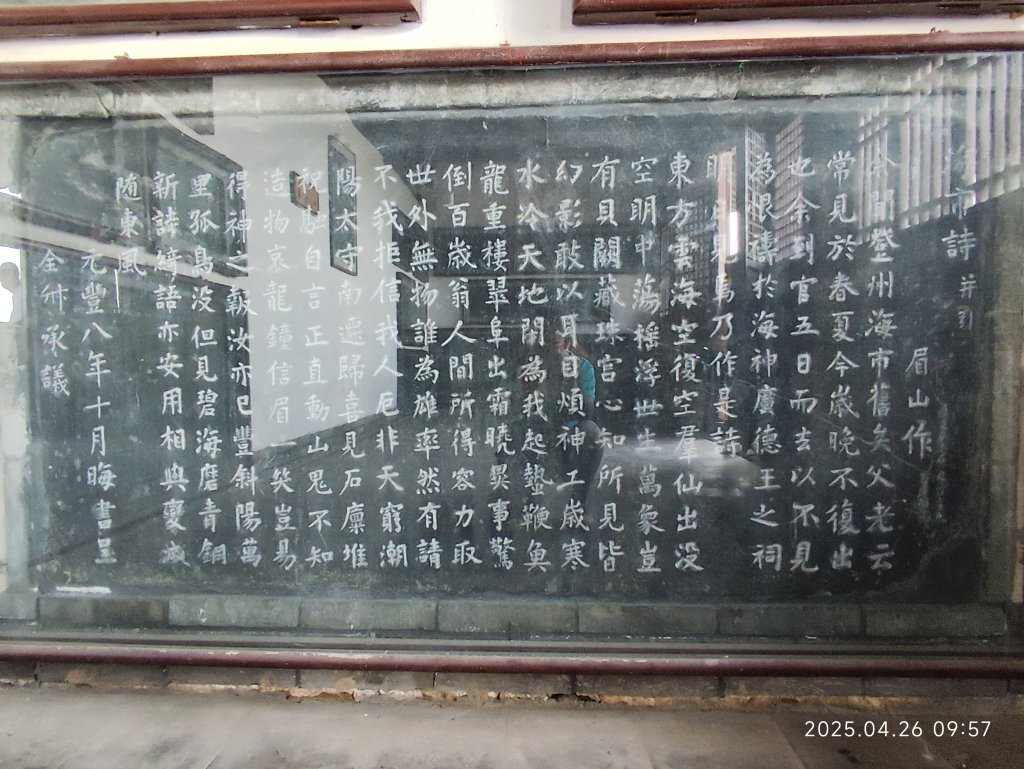 海市詩并引
眉山作
余聞登州海市舊矣父老云
常見於春夏今歲晚不復出
也余到官五日而去以不見
為恨禱於海神廣德王之祠
明日見焉乃作是詩
東方雲海空復空羣仙出没
空明中蕩搖浮世生萬象豈
有貝闕藏珠宫心知所見皆
幻影敢以耳目煩神工歲寒
水冷天地閉為我起蟄鞭魚
龍重樓翠阜出霜曉異事驚
倒百歲翁人間所得容力取
世外無物誰為雄率然有請
不我拒信我人厄非天窮潮
陽太守南遷歸喜見石廩堆
祝融自言正直動山鬼不知
造物哀龍鐘信眉一笑豈易
得神之報汝亦已豐斜陽萬
里孤鳥没但見碧海磨青銅
新詩綺語亦安用相與變滅
随東風
元豐八年十月晦書呈
全叔承議
2025.04.26 09:57